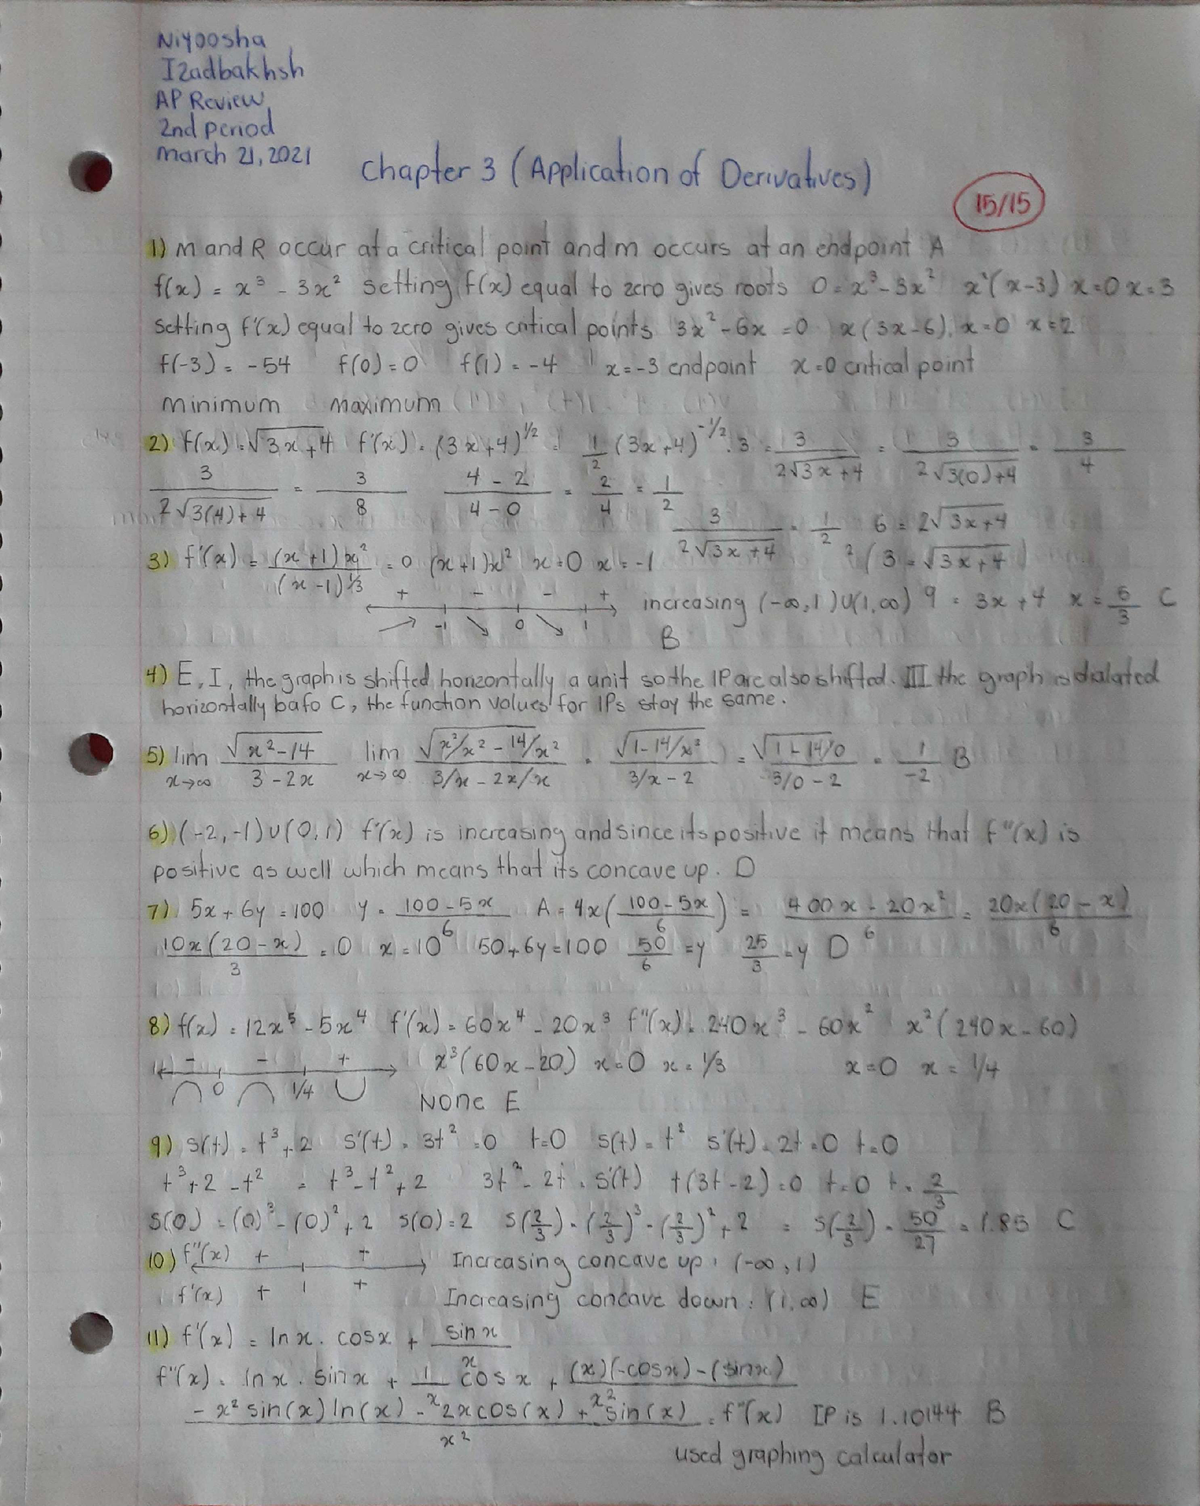 Niyoosha
Izadbakhsh
AP Review
2nd period
march 21, 2021
Chapter 3 (Application of Derivatives)
15/15
1) M and R occur at a critical point and m occurs at an endpoint A
f(x) = x³ - 3x² setting f(x) equal to zero gives roots 0 = x³-3x² x²(x-3) x=0 x=3
setting f'(x) equal to zero gives critical points 3x²-6x=0 x(3x-6), x=0 x=2
f(-3) = -54 f(0)=0 f(1) = -4 x=-3 endpoint x=0 critical point
minimum maximum
2) f(x)=√3x+4 f'(x) = (3x+4)^1/2 = 1/2 (3x+4)^-1/2 · 3 = 3/2√3x+4 = 3/2√3(0)+4 = 3/4
3/2√3(4)+4 = 3/8 4-2/4-0 = 2/4 = 1/2 3/2√3x+4 = 1/2 6 = 2√3x+4
3) f'(x) = (x+1)x²/(x-1)^1/3 = 0 (x+1)x² x=0 x=-1 2(3=√3x+4)
+ - - + increasing (-∞,1)U(1,∞) 9 = 3x+4 x=5/3 C
-1 0 1 B
4) E, I, the graph is shifted horizontally a unit so the IP are also shifted. III the graph is dialated
horizontally bafo C, the function values for IPs stay the same.
5) lim x→∞ √x²-14/3-2x lim x→∞ √x²/x² - 14/x²/3/x - 2x/x = √1-14/x²/3/x-2 = √1-14/0/3/0-2 = 1/-2 B
6) (-2,-1)U(0,1) f'(x) is increasing and since its positive it means that f"(x) is
positive as well which means that its concave up. D
7) 5x+6y=100 y=100-5x/6 A=4x(100-5x/6) = 400x-20x²/6 = 20x(20-x)/6
10x(20-x)/3 = 0 x=10 50+6y=100 50/6=y 25/3=y D
8) f(x) = 12x⁵-5x⁴ f'(x)=60x⁴-20x³ f"(x)=240x³-60x² x²(240x-60)
- - + x³(60x-20) x=0 x=1/3 x=0 x=1/4
0 1/4 None E
9) s(t)=t³+2 s'(t)=3t²=0 t=0 s(t)=t² s'(t)=2t=0 t=0
t³+2-t² = t³-t²+2 3t²-2t=s'(t) t(3t-2)=0 t=0 t=2/3
s(0)=(0)³-(0)²+2 s(0)=2 s(2/3)=(2/3)³-(2/3)²+2 = s(2/3)=50/27=1.85 C
10) f"(x) + + Increasing concave up: (-∞,1)
f'(x) + 1 + Increasing concave down: (1,∞) E
11) f'(x) = lnx · cosx + sinx/x
f"(x) = lnx · sinx + 1/x cosx + (x)(-cosx)-(sinx)/x²
-x²sin(x)ln(x)-2xcos(x)+sin(x)/x² = f"(x) IP is 1.10144 B
used graphing calculator